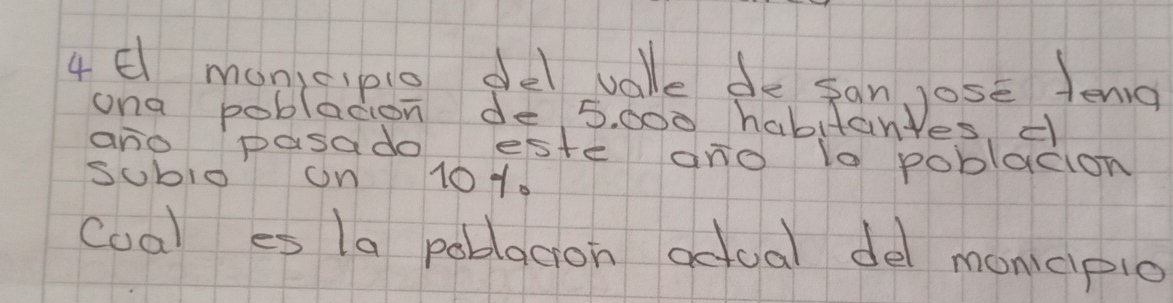 4 El monicipio del valle de san jose tenia
una poblacion de 5.000 habitantes el
año pasado este año la poblacion
subio un 10%
Cual es la poblacion actual del monicipio